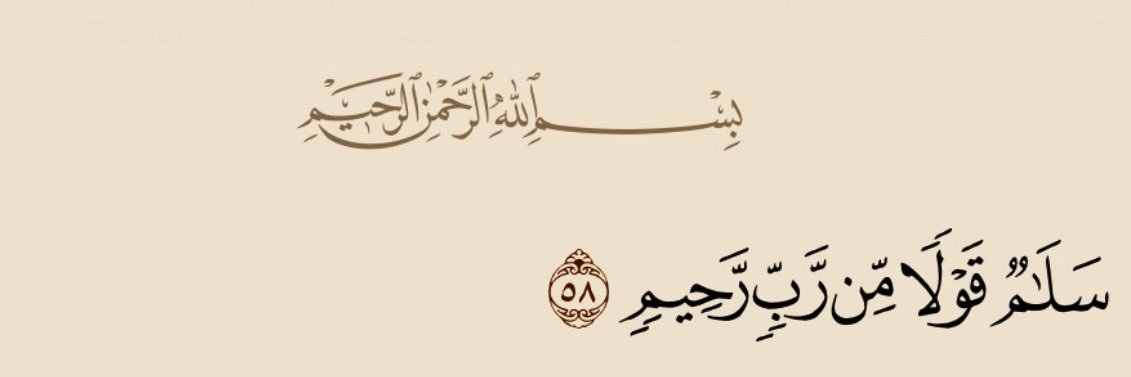 بِسْمِ ٱللَّهِ ٱلرَّحْمَٰنِ ٱلرَّحِيمِ
سَلَٰمٌ قَوْلًا مِّن رَّبٍّ رَّحِيمٍ ٥٨